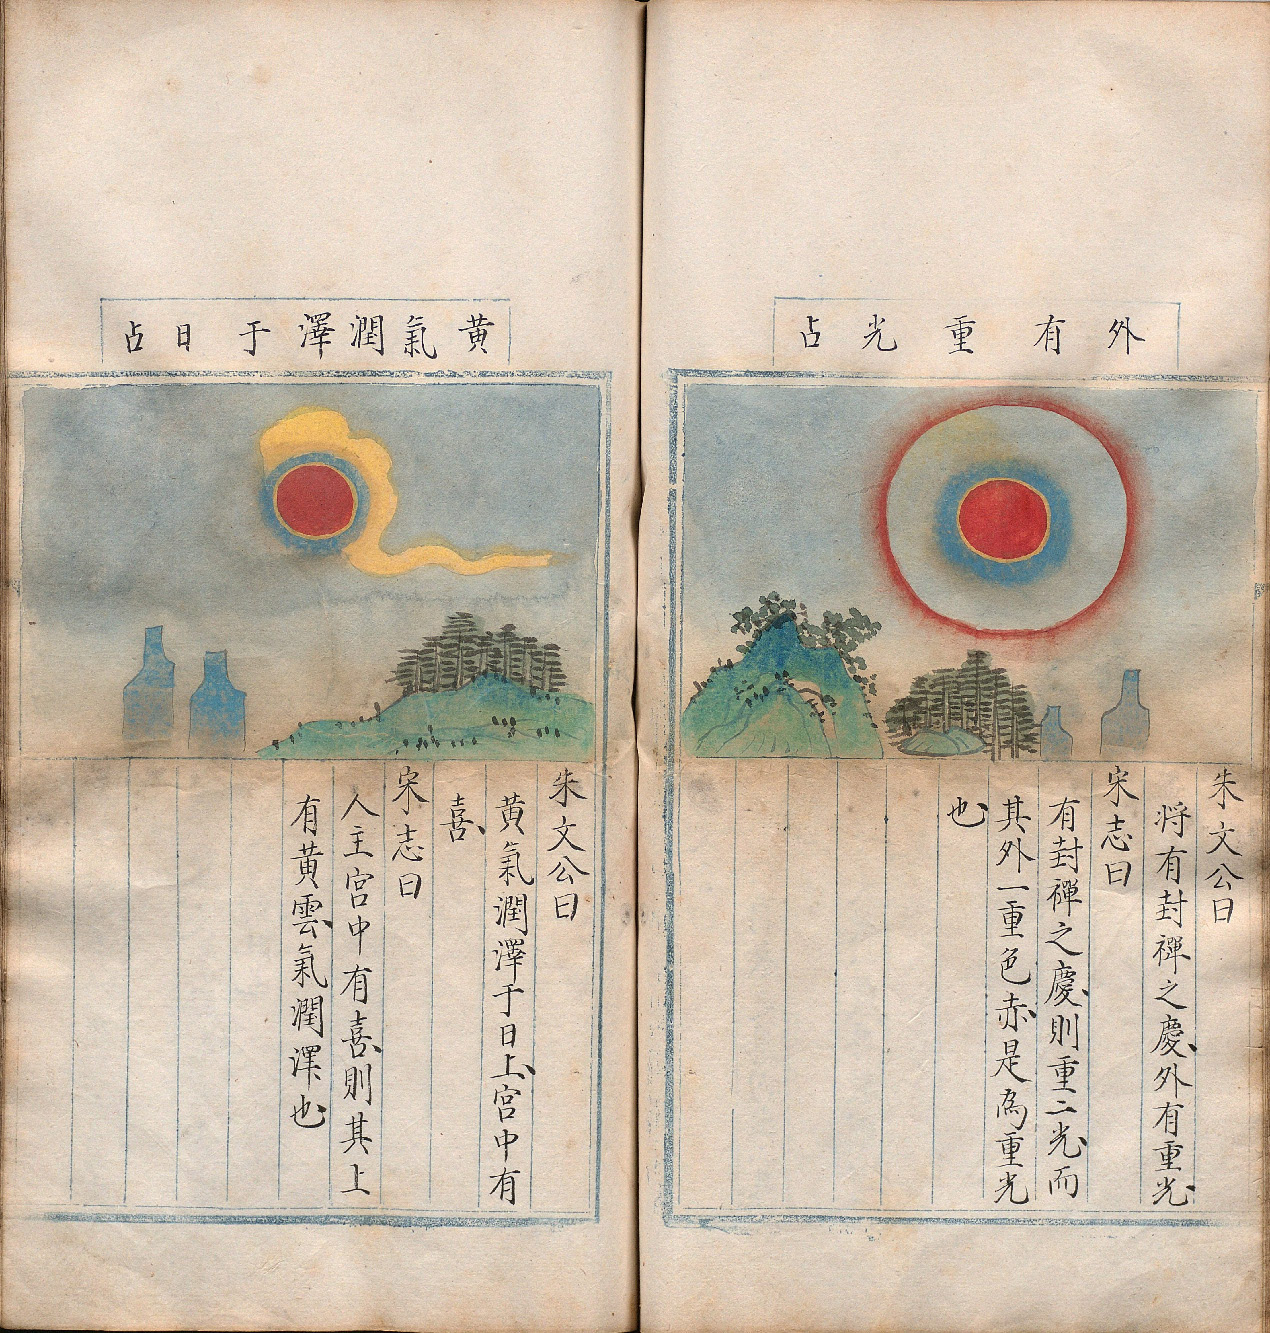 外有重光占
朱文公曰
將有封禪之慶外有重光
宋志曰
有封禪之慶則重二光而
其外一重色赤是為重光
也
黃氣潤澤于日占
朱文公曰
黃氣潤澤于日上宮中有
喜
宋志曰
人主宮中有喜則其上
有黃雲氣潤澤也